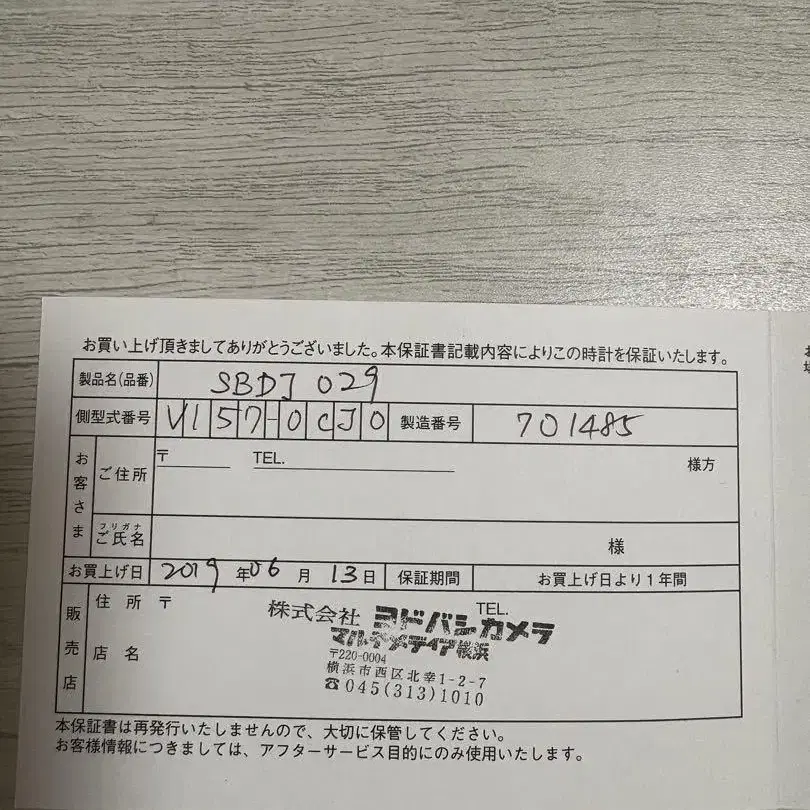 お買い上げ頂きましてありがとうございました。本保証書記載内容によりこの時計を保証いたします。
製品名(品番) SBDJ 029
側型式番号 V157-0CJ0 製造番号 701485
お客さま ご住所 〒 TEL. 様方
フリガナ
ご氏名 様
お買上げ日 2019 年 06 月 13 日 保証期間 お買上げ日より1年間
販売店 住所 〒 TEL.
株式会社 ヨドバシカメラ
マルチメディア横浜
〒220-0004
店名 横浜市西区北幸1-2-7
☎045(313)1010
本保証書は再発行いたしませんので、大切に保管してください。
お客様情報につきましては、アフターサービス目的にのみ使用いたします。